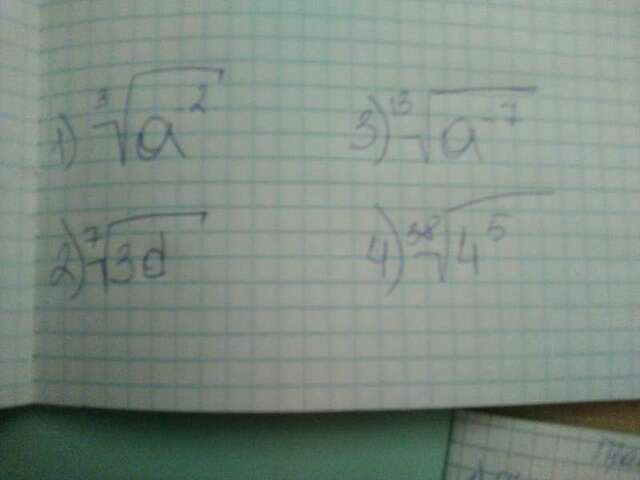 1) ³√a² 3) ¹³√a⁻⁷
2) ⁷√3d 4) ³⁸√4⁵